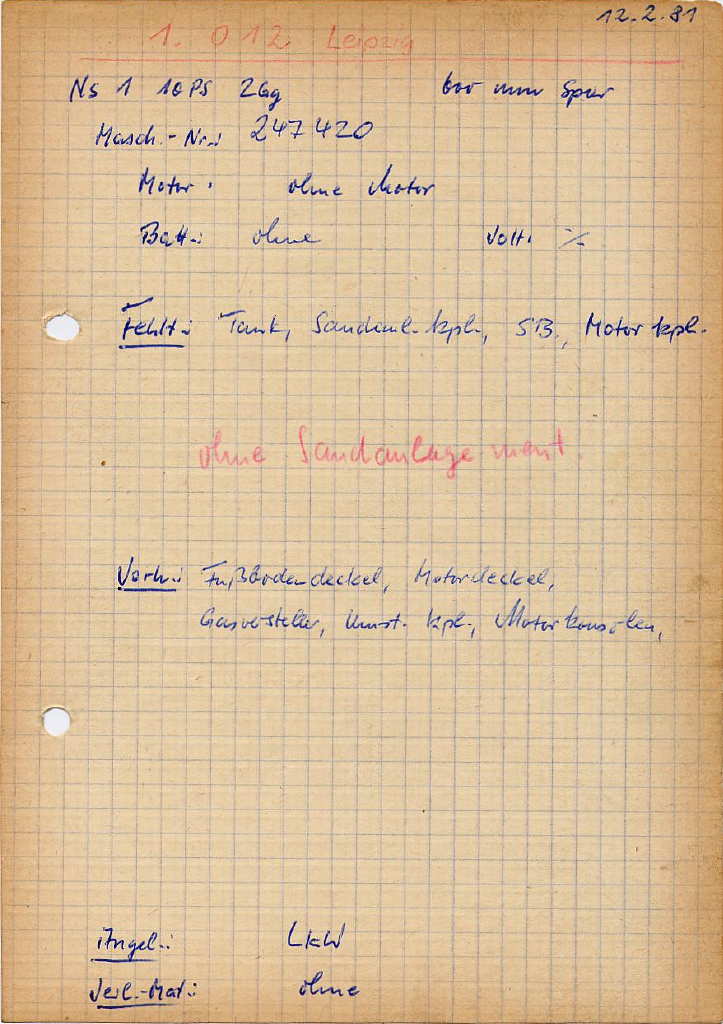 12.2.81
1. 012 Leipzig
Ns 1 10 PS 2Gg 600 mm Spur
Masch.-Nr.: 247420
Motor: ohne Motor
Batt.: ohne Volt: ·/.
Fehlt: Tank, Sandanl. kpl., SB., Motor kpl.
ohne Sandanlage mont.
Vorh.: Fußbodendeckel, Motordeckel,
Gasversteller, kpl., Motorkonsolen,
Angel.: LKW
Verl.-Mat.: ohne